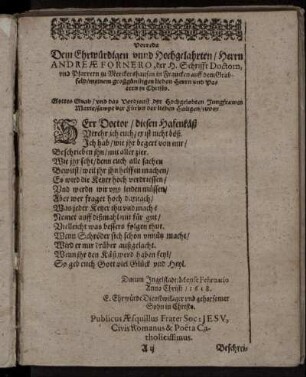 Dem Ehrwürdigen vnnd Hochgelahrten / Herrn
ANDREÆ FORNERO, der H. Schrifft Doctorn,
vnd Pfarrern zu in Francken auff dem
meinem großgünstigen lieben Herrn vnd
in Christo.
Gottes Gnad / vnd das der Hochgelobten Jungfrawen
der lieben Heiligen / zuvor
HErr Doctor / diesen Hafenkäß
Verehr ich euch / er ist nicht böß.
Ich hab / wie jhr begert von mir /
Beschrieben jhn / mit aller zier.
Wie jhr seht / denn euch alle sachen
Bewust / weil jhr jhn helffen machen /
Es wird die Ketzer hoch verdriessen /
Vnd werdn wir vns leiden müssen /
Aber wer frager hoch darnach /
Was jeder Ketzer thu vnd mach?
Nemet auff dißmal mit für gut /
Vielleicht was bessers folgen thut.
Wenn Schröder sich schon vnnütz macht /
Wird er nur drüber außgelacht.
Wenn jhr den Käß werd haben feyl /
So geb euch Gott viel Glück vnd Heyl.
Datum Ingelstadt Mense Februario
Anno Christi 1618.
E. Ehrwürde Dienstwilliger vnd gehorsamer
Sohn in Christo.
Publicus Æsquillus Frater Soc: JESV,
Civis Romanus & Poëta Ca-
tholicissimus.
A ij Beschrei-